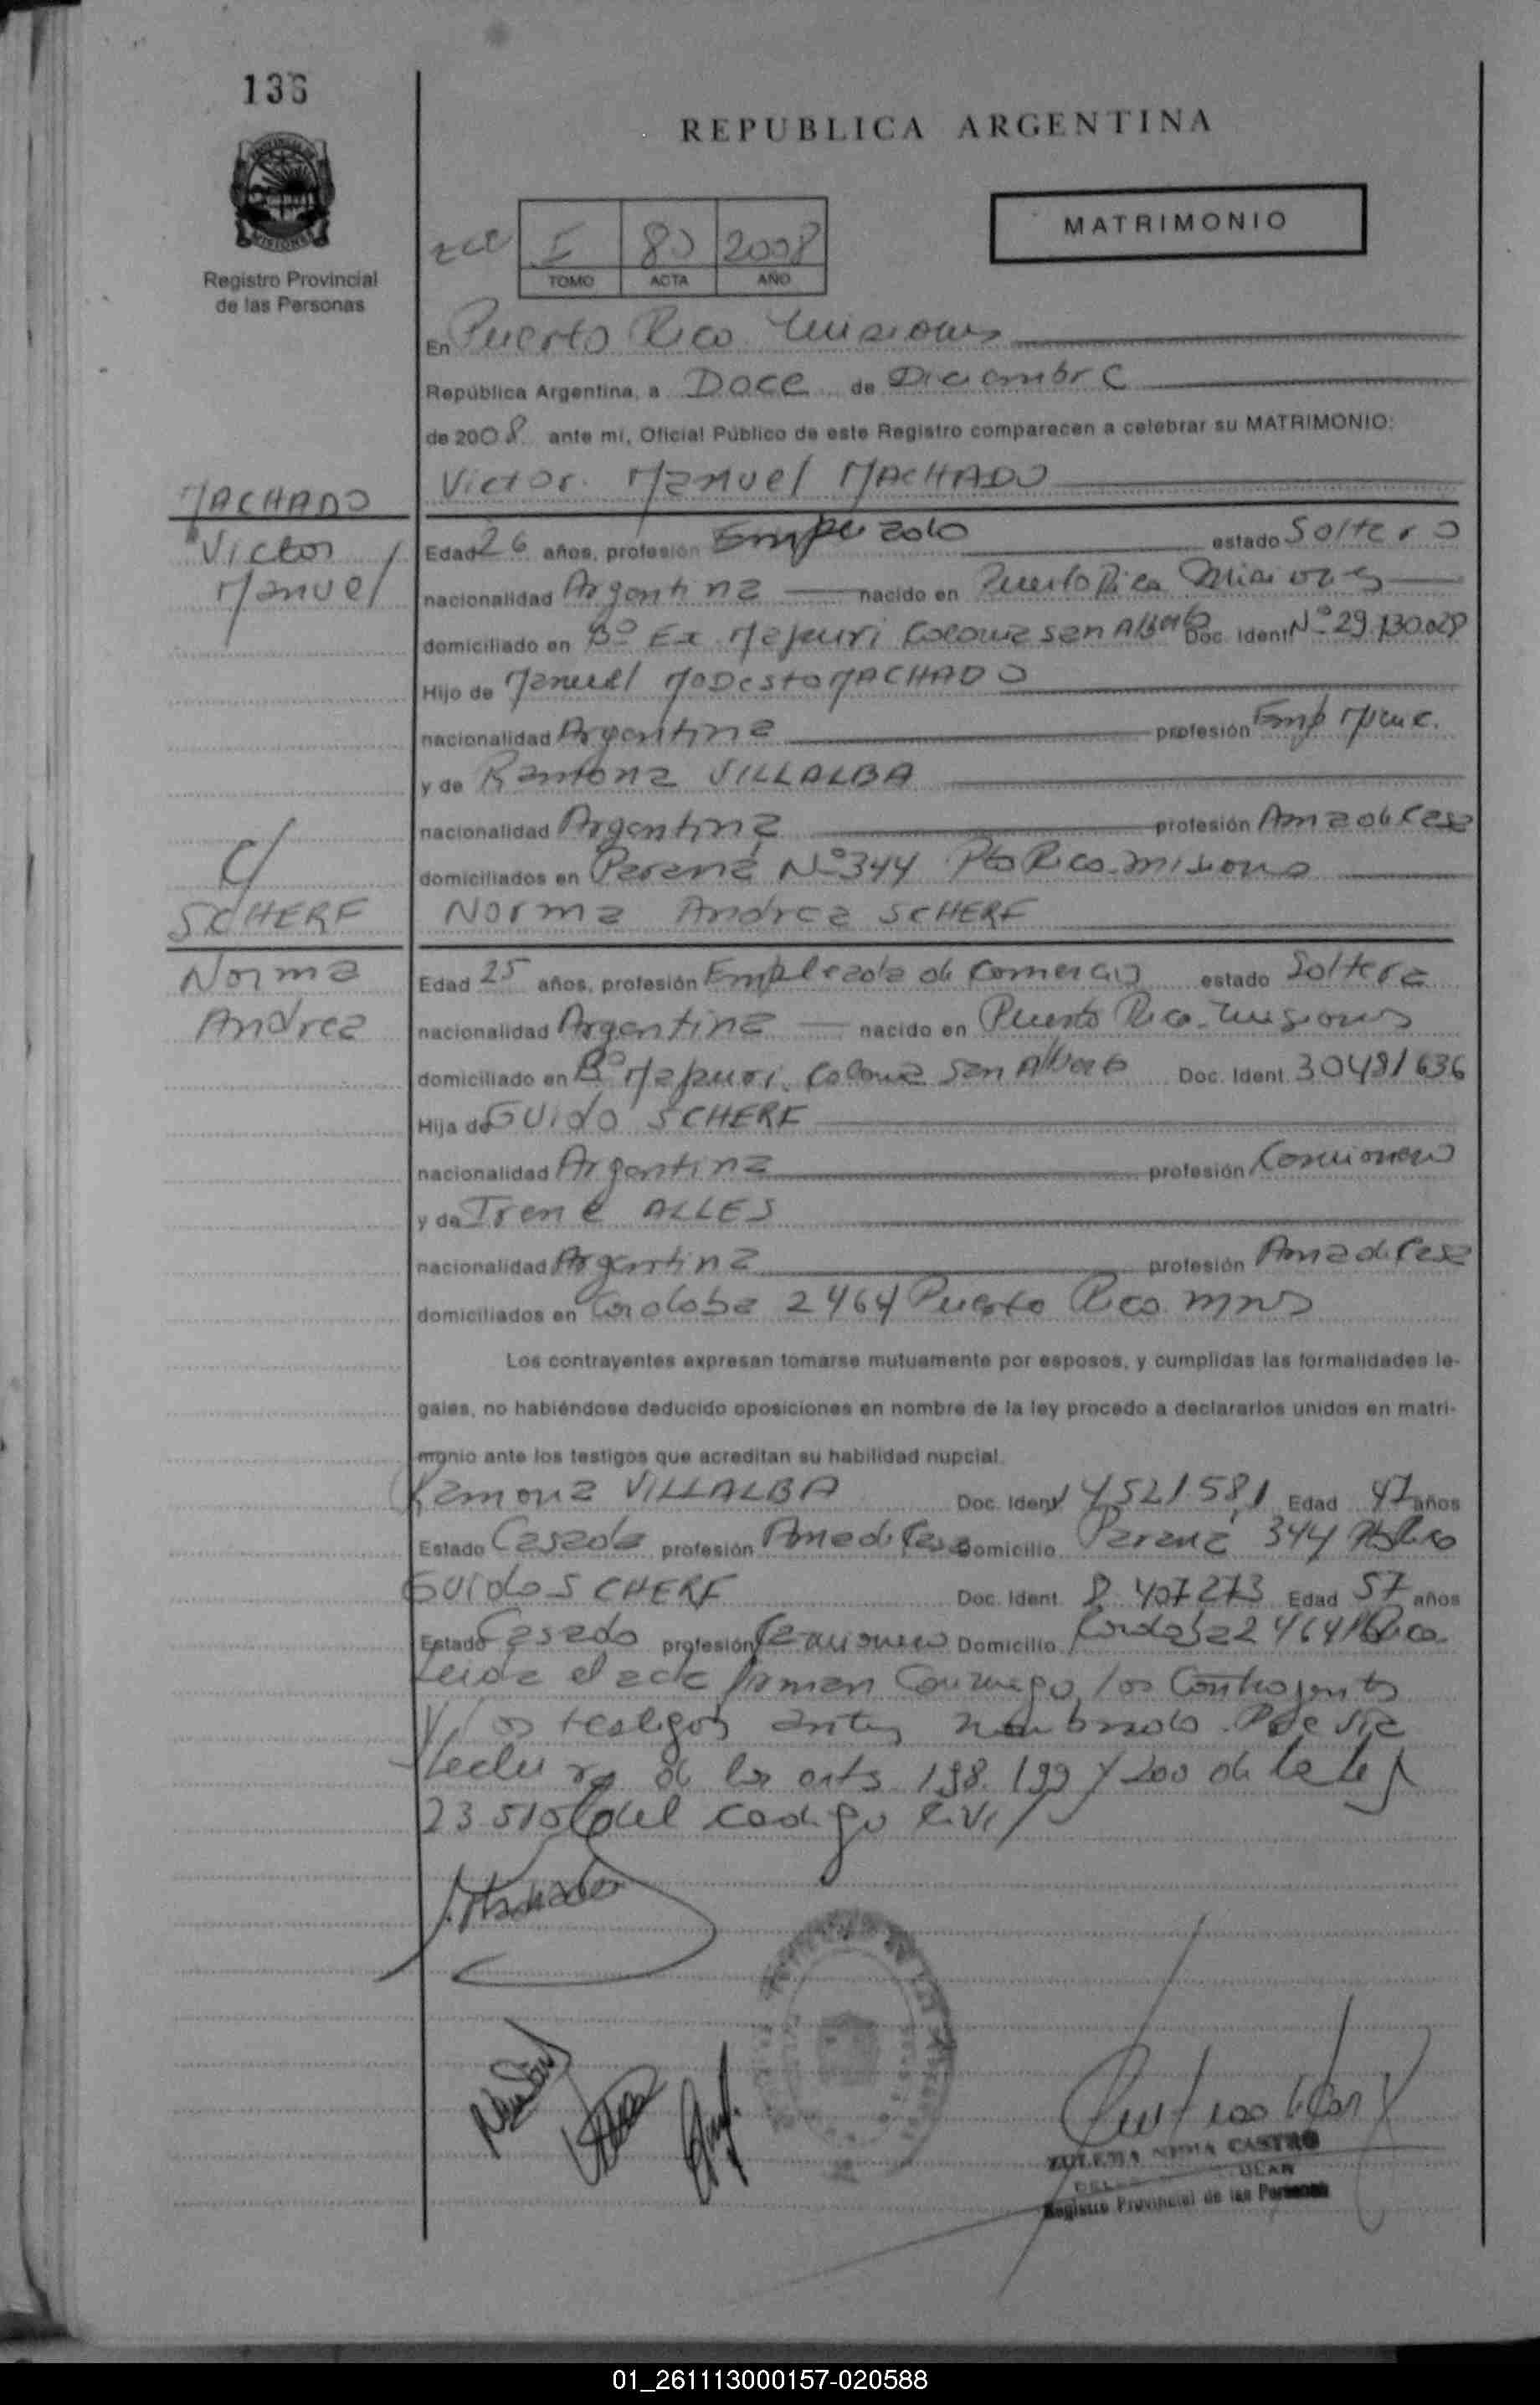 136
REPUBLICA ARGENTINA
MATRIMONIO
I 80 2008
TOMO ACTA AÑO
Registro Provincial
de las Personas
En Puerto Rico Misiones
República Argentina, a Doce de Diciembre
de 2008 ante mi, Oficial Público de este Registro comparecen a celebrar su MATRIMONIO:
Victor Manuel MACHADO
MACHADO
Victor
Manuel
Edad 26 años, profesión Empleado estado Soltero
nacionalidad Argentina nacido en Puerto Rico Misiones
domiciliado en Bº Ex Mapuri Colonia San Alberto Doc. Ident Nº 29.130.028
Hijo de Manuel Modesto MACHADO
nacionalidad Argentina profesión Emp Munic.
y de Ramona VILLALBA
nacionalidad Argentina profesión Ama de Casa
domiciliados en Paraná Nº 344 Pto Rico misiones
C/
SCHERF
Norma
Andrea
Norma Andrea SCHERF
Edad 25 años, profesión Empleada de Comercio estado Soltera
nacionalidad Argentina nacido en Puerto Rico Misiones
domiciliado en Bº Mapuri. Colonia San Alberto Doc. Ident. 30481636
Hija de Guido SCHERF
nacionalidad Argentina profesión Camionero
y de Irene ALLES
nacionalidad Argentina profesión Ama de Casa
domiciliados en Cordoba 2464 Puerto Rico mns
Los contrayentes expresan tomarse mutuamente por esposos, y cumplidas las formalidades le-
gales, no habiéndose deducido oposiciones en nombre de la ley procedo a declararlos unidos en matri-
monio ante los testigos que acreditan su habilidad nupcial.
Ramona VILLALBA Doc. Ident 14521581 Edad 47 años
Estado Casada profesión Ama de Casa Domicilio Paraná 344 Pto Rico
Guido SCHERF Doc. Ident. 8.407273 Edad 57 años
Estado Casado profesión Camionero Domicilio Cordoba 2464 P Rico
Leida el acta firman Conmigo los Contrayentes
y los testigos antes nombrado. Previa
lectura de los arts 198. 199 y 200 de la ley
23.515 del codigo Civil
ZULEMA CASTRO
Registro Provincial de las Personas
01_261113000157-020588